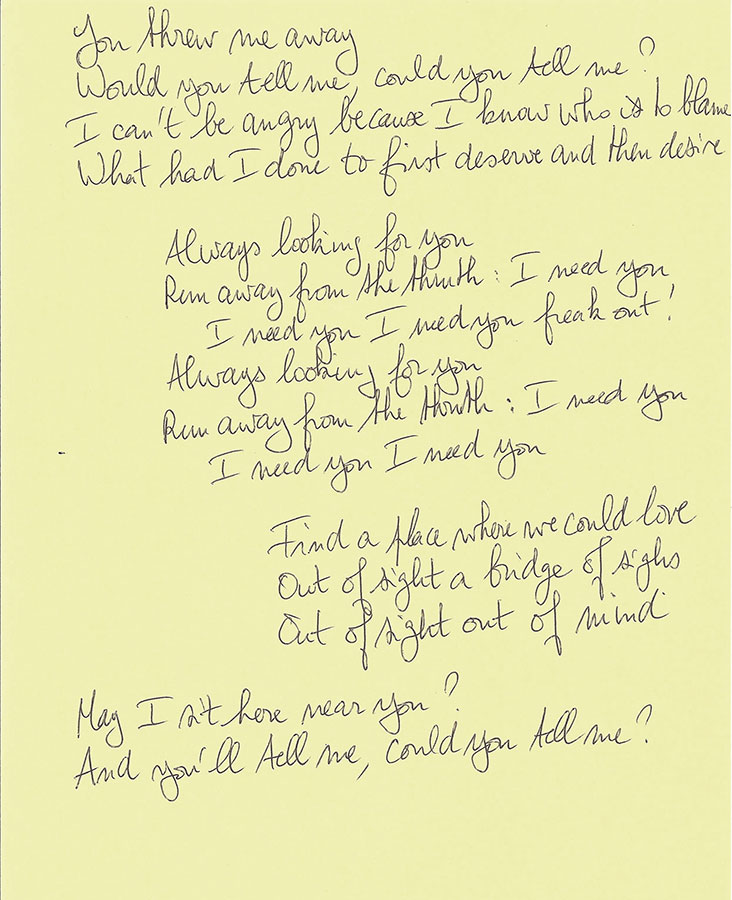 You threw me away
Would you tell me, could you tell me?
I can't be angry because I know who is to blame
What had I done to first deserve and then desire
Always looking for you
Run away from the thruth : I need you
I need you I need you freak out!
Always looking for you
Run away from the thruth : I need you
I need you I need you
Find a place where we could love
Out of sight a bridge of sighs
Out of sight out of mind
May I sit here near you?
And you'll tell me, could you tell me?